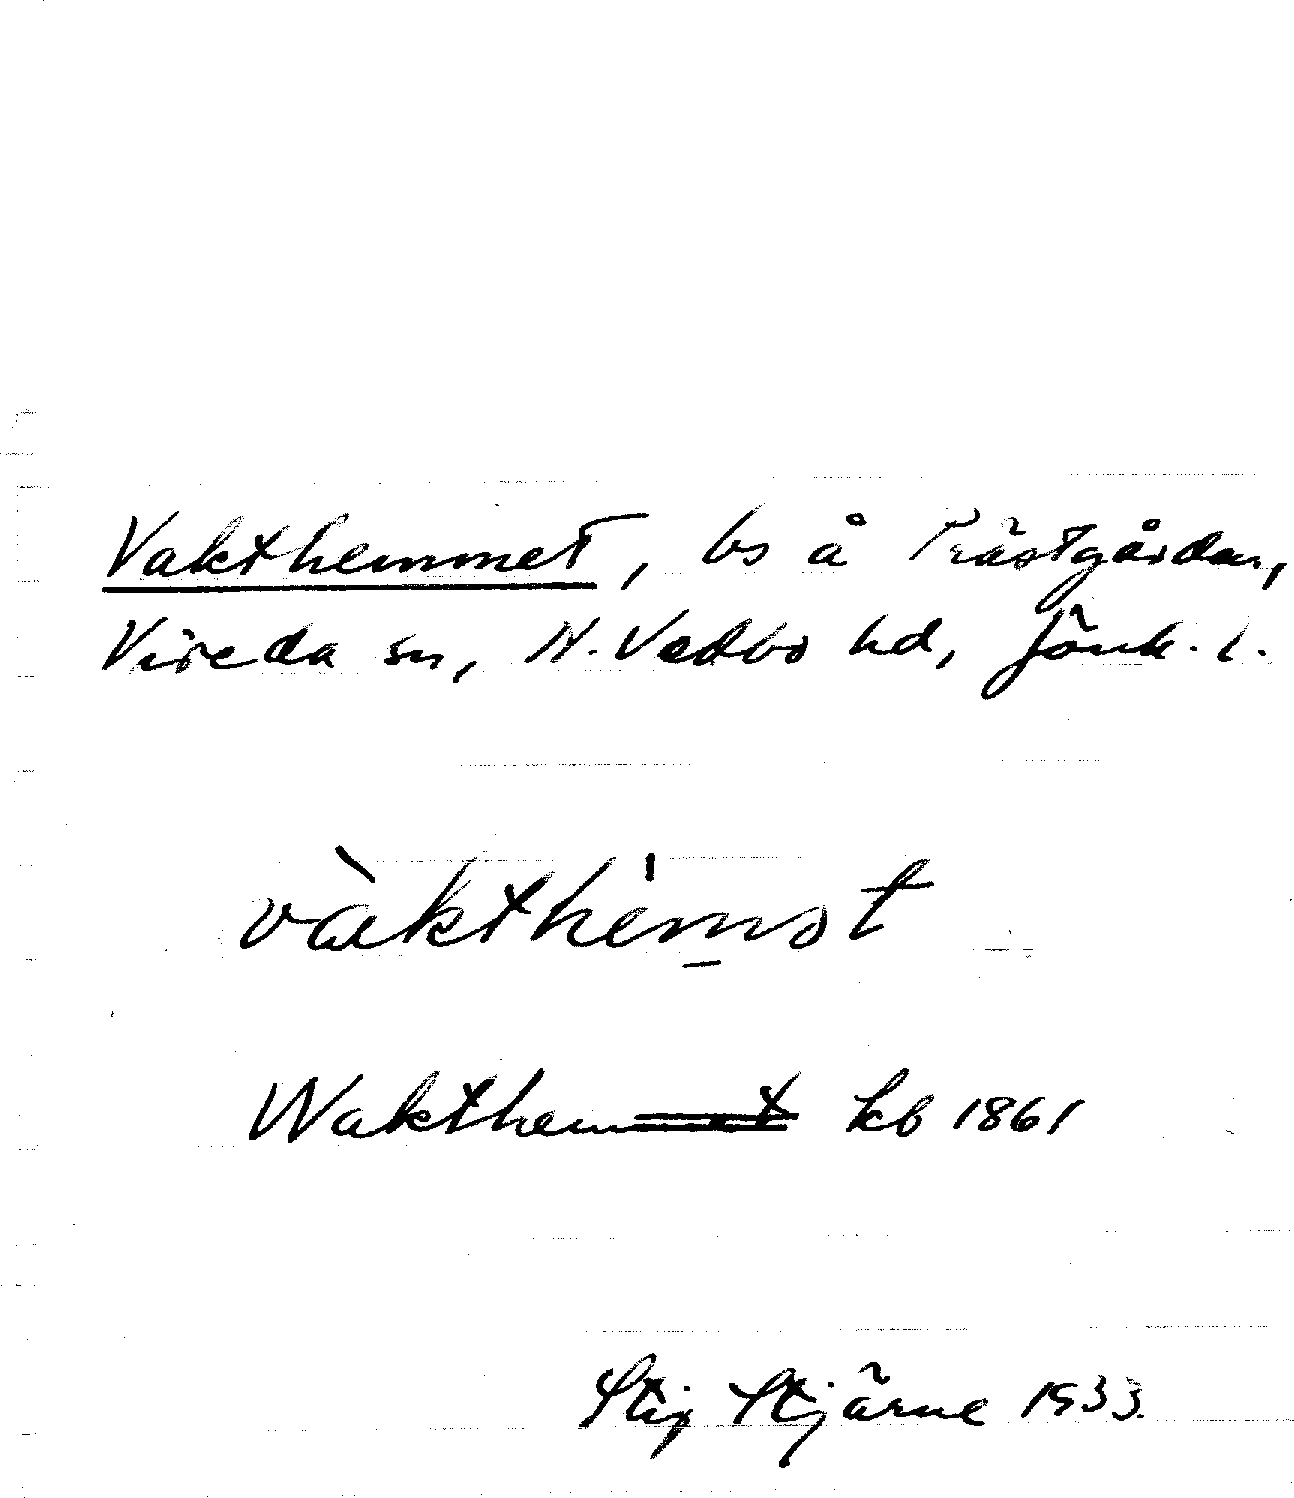 Vakthemmet, bs å Prästgården,
Vireda sn, N. Vedbo hd, Jönk. l.
vàkthèmət
Wakthemmet kb 1861
Stig Stjärne 1933.